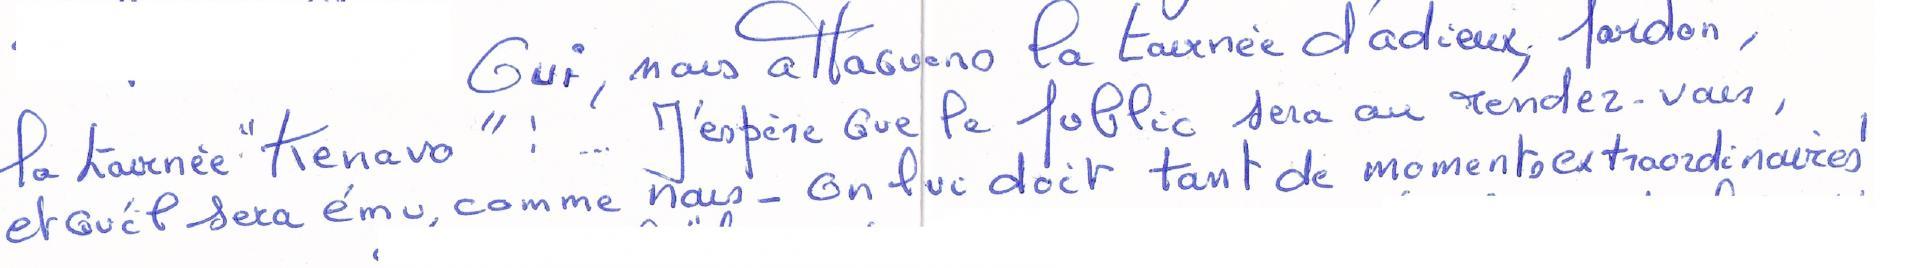 Oui, nous attaquons la tournée d'adieux, pardon,
la tournée "Kenavo" ! ... J'espère que le public sera au rendez-vous,
et qu'il sera ému, comme nous - On lui doit tant de moments extraordinaires !